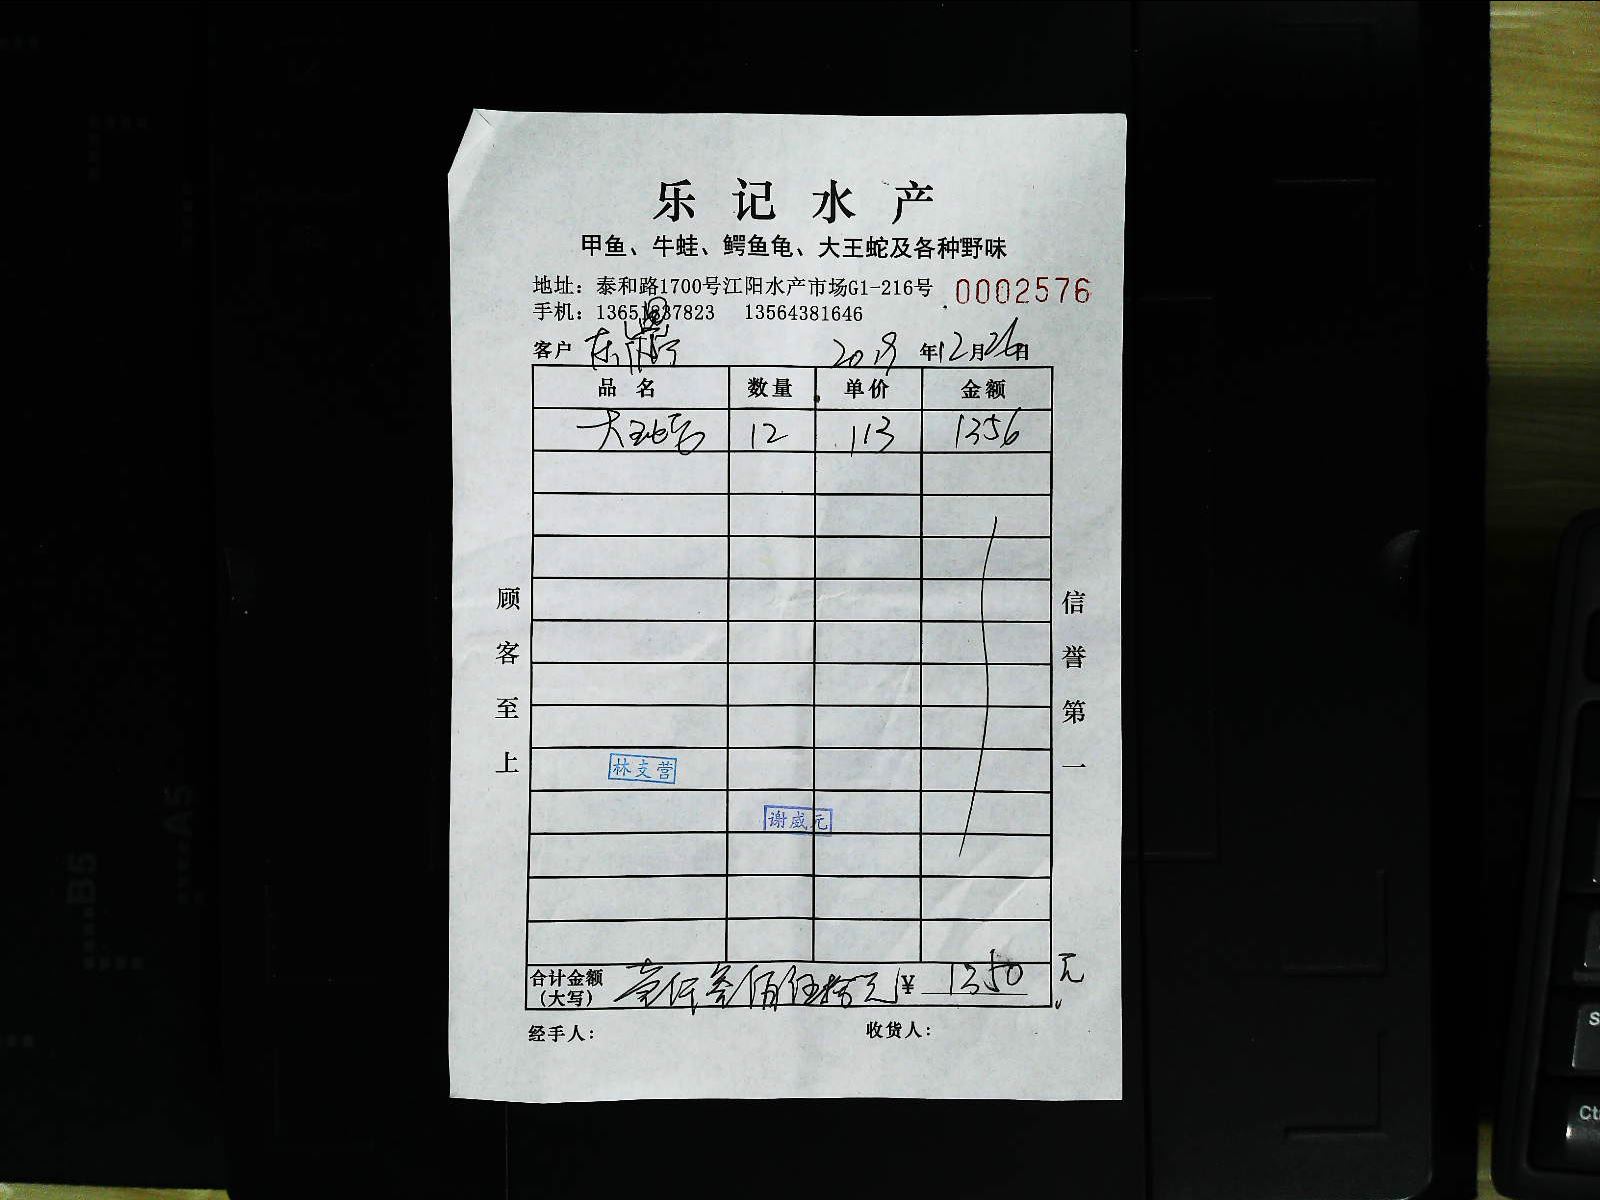 乐记水产
甲鱼、牛蛙、鳄鱼龟、大王蛇及各种野味
地址：泰和路1700号江阳水产市场G1-216号 0002576
手机：13651837823 13564381646
客户 2019年12月26日
品名 数量 单价 金额
12 113 1356
顾客至上
信誉第一
林支营
谢威元
合计金额（大写） 壹仟叁佰伍拾元 ¥ 1350 元
经手人： 收货人：